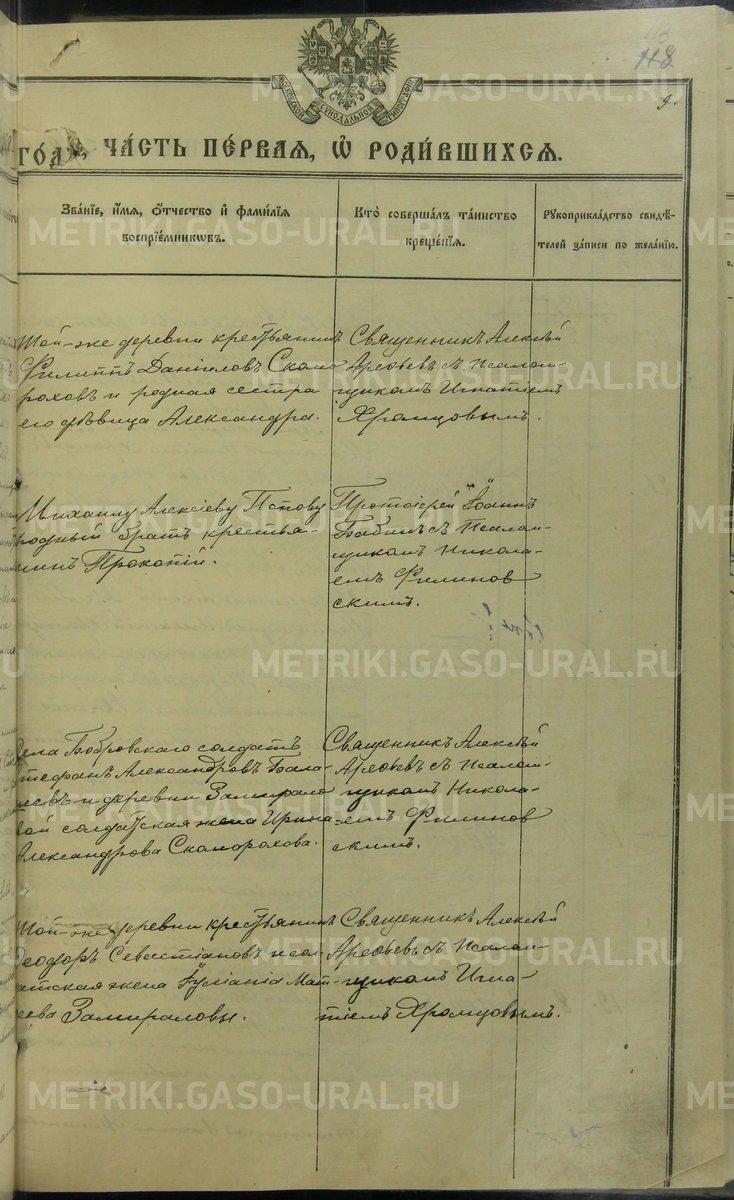 118
МОСКОВСКОЙ СѴНОДАЛЬНОЙ ТИПОГРАФІИ
9.
ГОДЪ, ЧА́СТЬ ПЕ́РВАЯ, Ѡ РОДИ́ВШИХСЯ.
Зва́ніе, и́мя, о́тчество и фами́лія
воспріе́мниковъ.
Кто̀ соверша́лъ та́инство
креще́нія.
Рукоприкла́дство свидѣ́-
телей за́писи по жела́нію.
Той-же деревни крестьянинъ
Филиппъ Даніиловъ Скомо
роховъ и родная сестра
его дѣвица Александра.
Священникъ Алексѣй
Арефьевъ съ псалом-
щикомъ Игнатіемъ
Хромцовымъ.
Михаилу Алексіеву Попову
родный братъ крестья-
нинъ Прокопій.
Протоіерей Іоаннъ
Бабинъ съ псалом-
щикомъ Никола-
емъ Филинов
скимъ.
Села Бобровскаго солдатъ
Стефанъ Александровъ Бала-
и деревни Замирало
вой солдатская жена Ирина
Александрова Скоморохова.
Священникъ Алексѣй
Арефьевъ съ псалом-
щикомъ Никола-
емъ Филинов
скимъ.
Той-же деревни крестьянинъ
Ѳеодоръ Севастіановъ и сол
датская жена Іуліанія Мат-
ѳеева Замираловы.
Священникъ Алексѣй
Арефьевъ съ псалом-
щикомъ Игна-
тіемъ Хромцовымъ.
METRIKI.GASO-URAL.RU